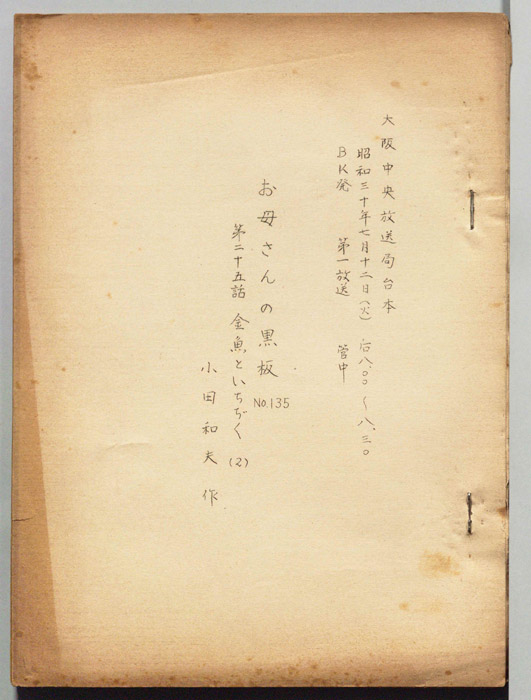 大阪中央放送局台本
昭和三十年七月十二日(火) 后八.〇〇～八.三〇
BK発 第一放送 管中
お母さんの黒板 No.135
第二十五話 金魚といちぢく (2)
小田和夫作